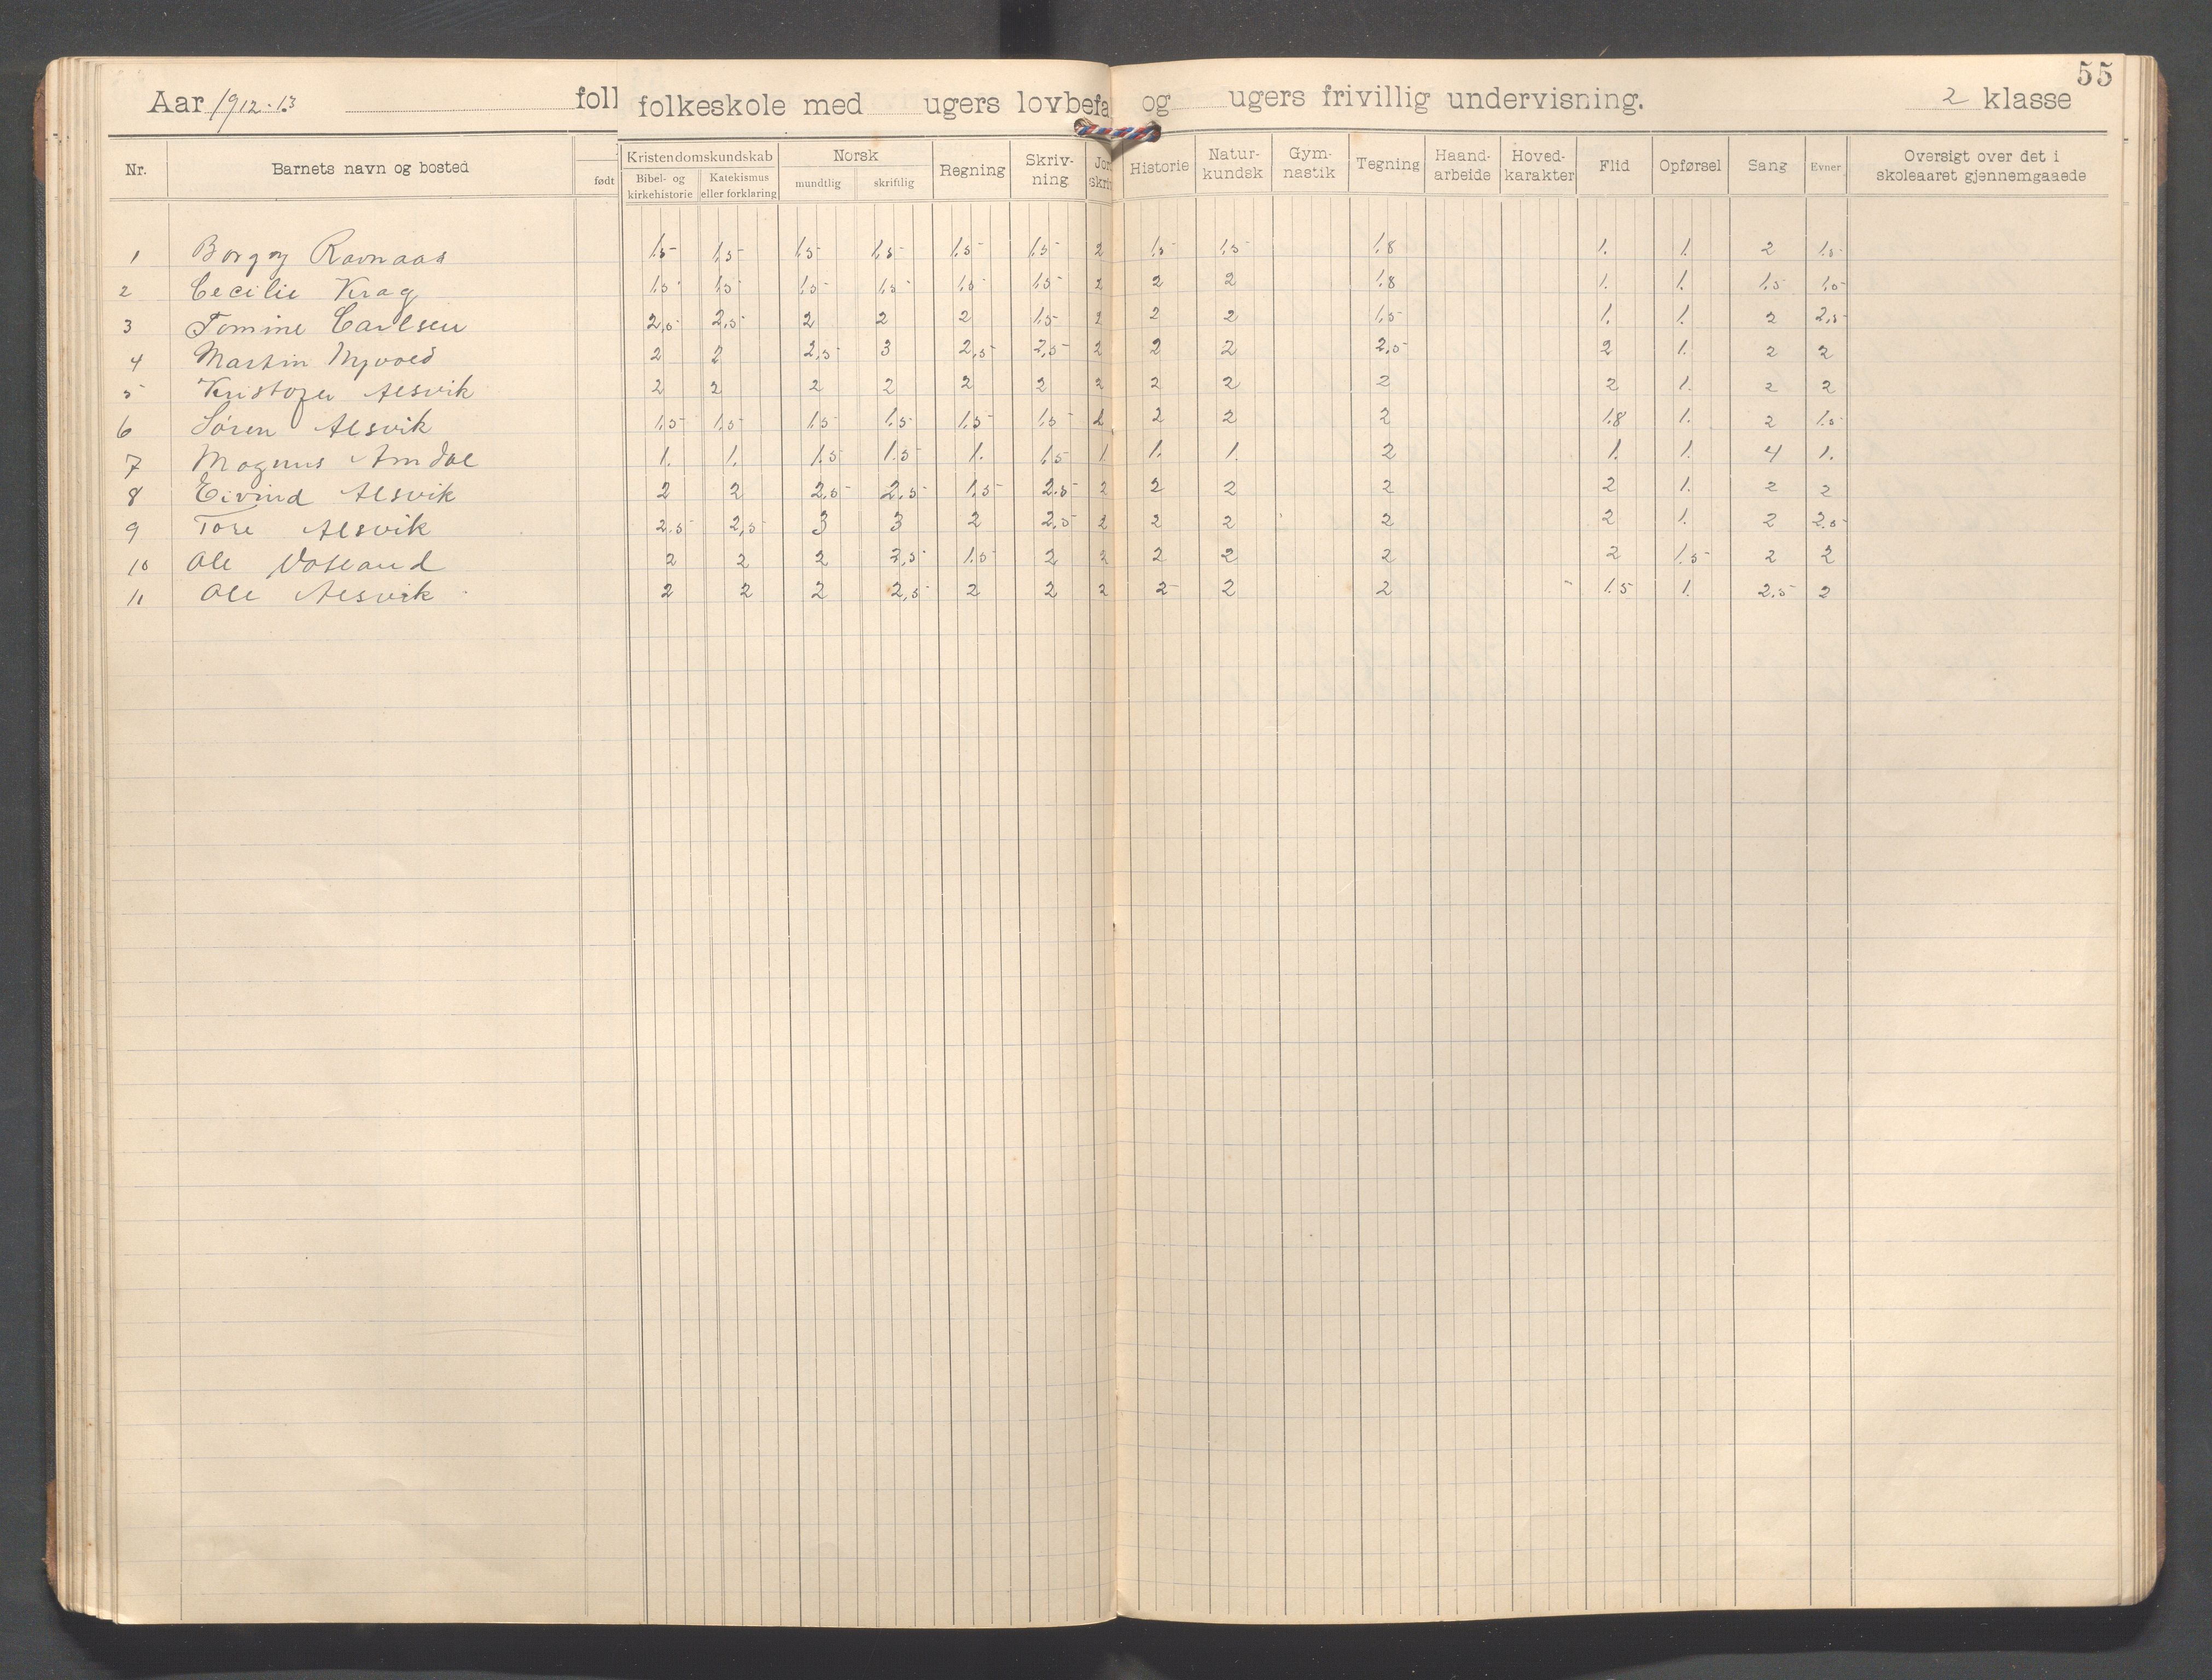 55
Aar 1912-13 foll folkeskole med ugers lovbefa og ugers frivillig undervisning. 2 klasse
Nr. Barnets navn og bosted født Kristendomskundskab Norsk Regning Skriv- Jor Historie Natur- Gym- Tegning Haand- Hoved- Flid Opførsel Sang Evner Oversigt over det i
Bibel- og Katekismus mundtlig skriftlig ning skriv kundsk nastik arbeide karakter skoleaaret gjennemgaaede
kirkehistorie eller forklaring
1 Borgny Ravnaas 1,5 1,5 1,5 1,5 1,5 1,5 2 1,5 1,5 1,8 1. 1. 2 1,5
2 Cecilie Krag 1,5 1,5 1,5 1,5 1,5 1,5 2 2 2 1,8 1. 1. 1,5 1,5
3 Tomine Carlsen 2,5 2,5 2 2 2 1,5 2 2 2 1,5 1. 1. 2 2,5
4 Martin Myvold 2 2 2,5 3 2,5 2,5 2 2 2 2,5 2 1. 2 2
5 Kristofer Alsvik 2 2 2 2 2 2 2 2 2 2 2 1. 2 2
6 Søren Alsvik 1,5 1,5 1,5 1,5 1,5 1,5 2 2 2 2 1,8 1. 2 1,5
7 Magnus Amdal 1. 1. 1.5 1.5 1. 1,5 1 1. 1. 2 1. 1. 4 1.
8 Eivind Alsvik 2 2 2,5 2,5 1,5 2.5 2 2 2 2 2 1. 2 2
9 Tore Alsvik 2,5 2,5 3 3 2 2,5 2 2 2 2 2 1. 2 2.5
10 Ole Vasland 2 2 2 2,5 1.5 2 2 2 2 2 2 1.5 2 2
11 Ole Alsvik 2 2 2 2,5 2 2 2 2 2 2 1.5 1. 2.5 2